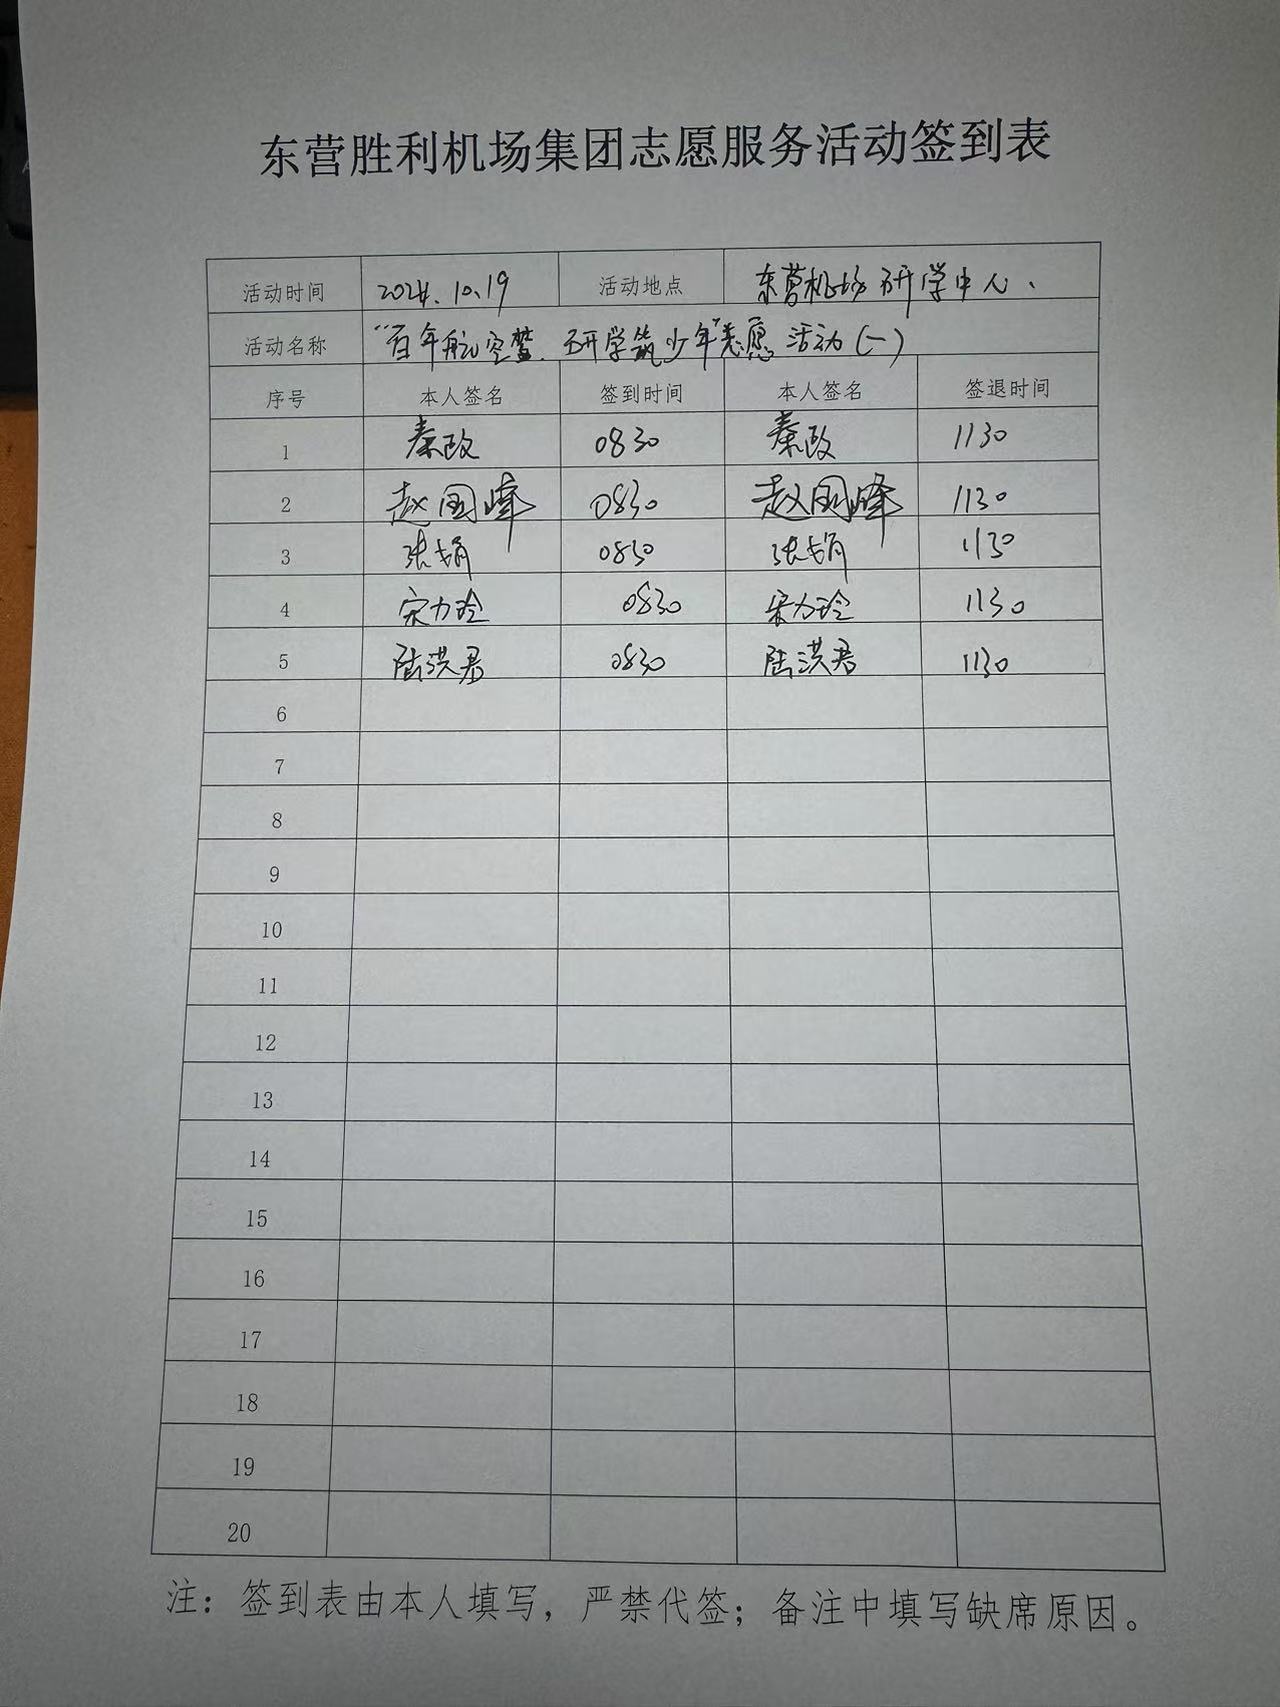 东营胜利机场集团志愿服务活动签到表
活动时间 2024.10.19 活动地点 东营机场研学中心、
活动名称 "百年航空梦.研学筑少年"志愿活动(一)
序号 本人签名 签到时间 本人签名 签退时间
1 秦政 0830 秦政 1130
2 赵国峰 0830 赵国峰 1130
3 张娟 0830 张娟 1130
4 宋力玲 0830 宋力玲 1130
5 陆洪君 0830 陆洪君 1130
6
7
8
9
10
11
12
13
14
15
16
17
18
19
20
注：签到表由本人填写，严禁代签；备注中填写缺席原因。